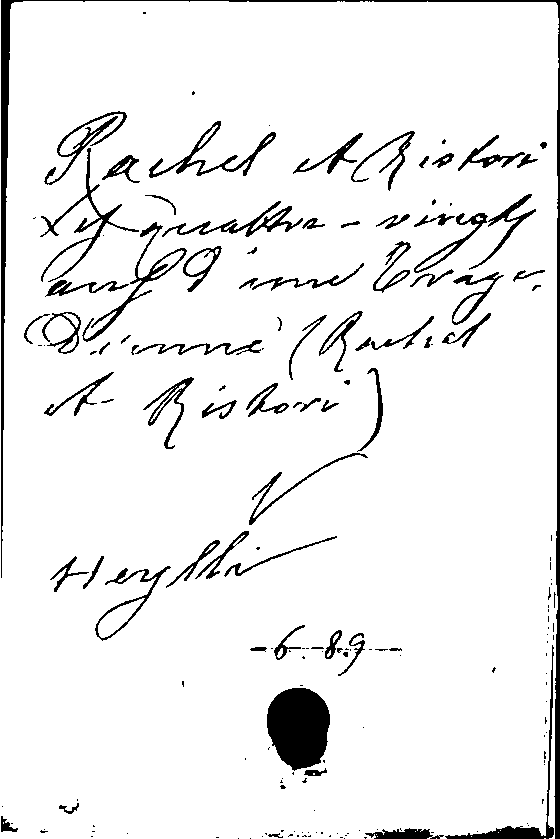 Rachel et Ristori
Les quattre-vingts
ans d'une Trage-
dienne (Rachel
et Ristori)
V
Heylli
-6-89-